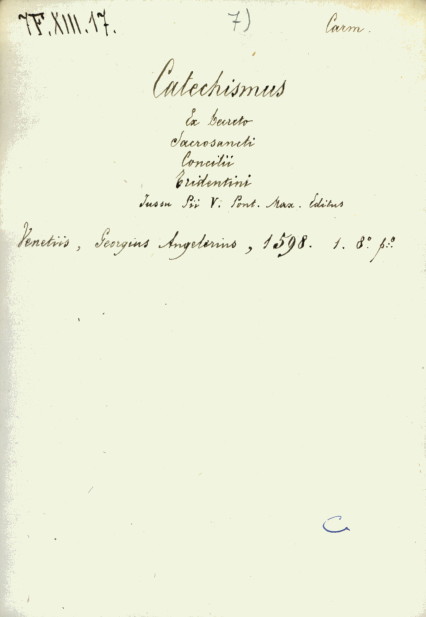 7F.XIII.17. 7) Carm.
Catechismus
Ex Decreto
Sacrosancti
Concilii
Tridentini
Jussu Pii V. Pont. Max. Editus
Venetiis, Georgius Angelerius, 1598. 1. 8º p:º
C